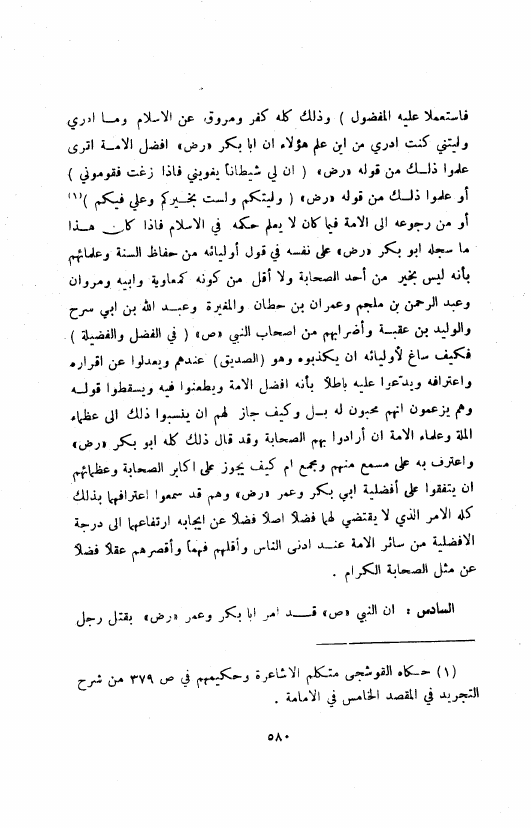 فاستعملا عليه المفضول ) وذلك كله كفر ومروق عن الاسلام وما ادري
وليتني كنت ادري من اين علم هؤلاء ان ابا بكر «رض» افضل الامة اترى
علموا ذلك من قوله «رض» ( ان لي شيطاناً يغويني فاذا زغت فقوموني )
أو علموا ذلك من قوله «رض» ( وليتكم ولست بخيركم وعلي فيكم )(١)
أو من رجوعه الى الامة فيما كان لا يعلم حكمه في الاسلام فاذا كان هذا
ما سجله ابو بكر «رض» على نفسه في قول أوليائه من حفاظ السنة وعلمائهم
بأنه ليس بخير من أحد الصحابة ولا أقل من كونه كمعاوية وابيه ومروان
وعبد الرحمن بن ملجم وعمران بن حطان والمغيرة وعبد الله بن ابي سرح
والوليد بن عقبة وأضرابهم من اصحاب النبي «ص» ( في الفضل والفضيلة )
فكيف ساغ لأوليائه ان يكذبوه وهو (الصديق) عندهم ويعدلوا عن اقراره
واعترافه ويدّعوا عليه باطلاً بأنه افضل الامة ويطعنوا فيه ويسقطوا قوله
وهم يزعمون انهم محبون له بل وكيف جاز لهم ان ينسبوا ذلك الى عظماء
الملة وعلماء الامة ان أرادوا بهم الصحابة وقد قال ذلك كله ابو بكر «رض»
واعترف به على مسمع منهم ومجمع ام كيف يجوز على اكابر الصحابة وعظمائهم
ان يتفقوا على أفضلية ابي بكر وعمر «رض» وهم قد سمعوا اعترافهما بذلك
كله الامر الذي لا يقتضي لهما فضلاً اصلاً فضلاً عن ايجابه ارتفاعهما الى درجة
الافضلية من سائر الامة عند ادنى الناس وأقلهم فهماً وأقصرهم عقلاً فضلاً
عن مثل الصحابة الكرام .
السادس : ان النبي «ص» قد امر ابا بكر وعمر «رض» بقتل رجل
(١) حكاه القوشجى متكلم الاشاعرة وحكيمهم في ص ٣٧٩ من شرح
التجريد في المقصد الخامس في الامامة .
٥٨٠